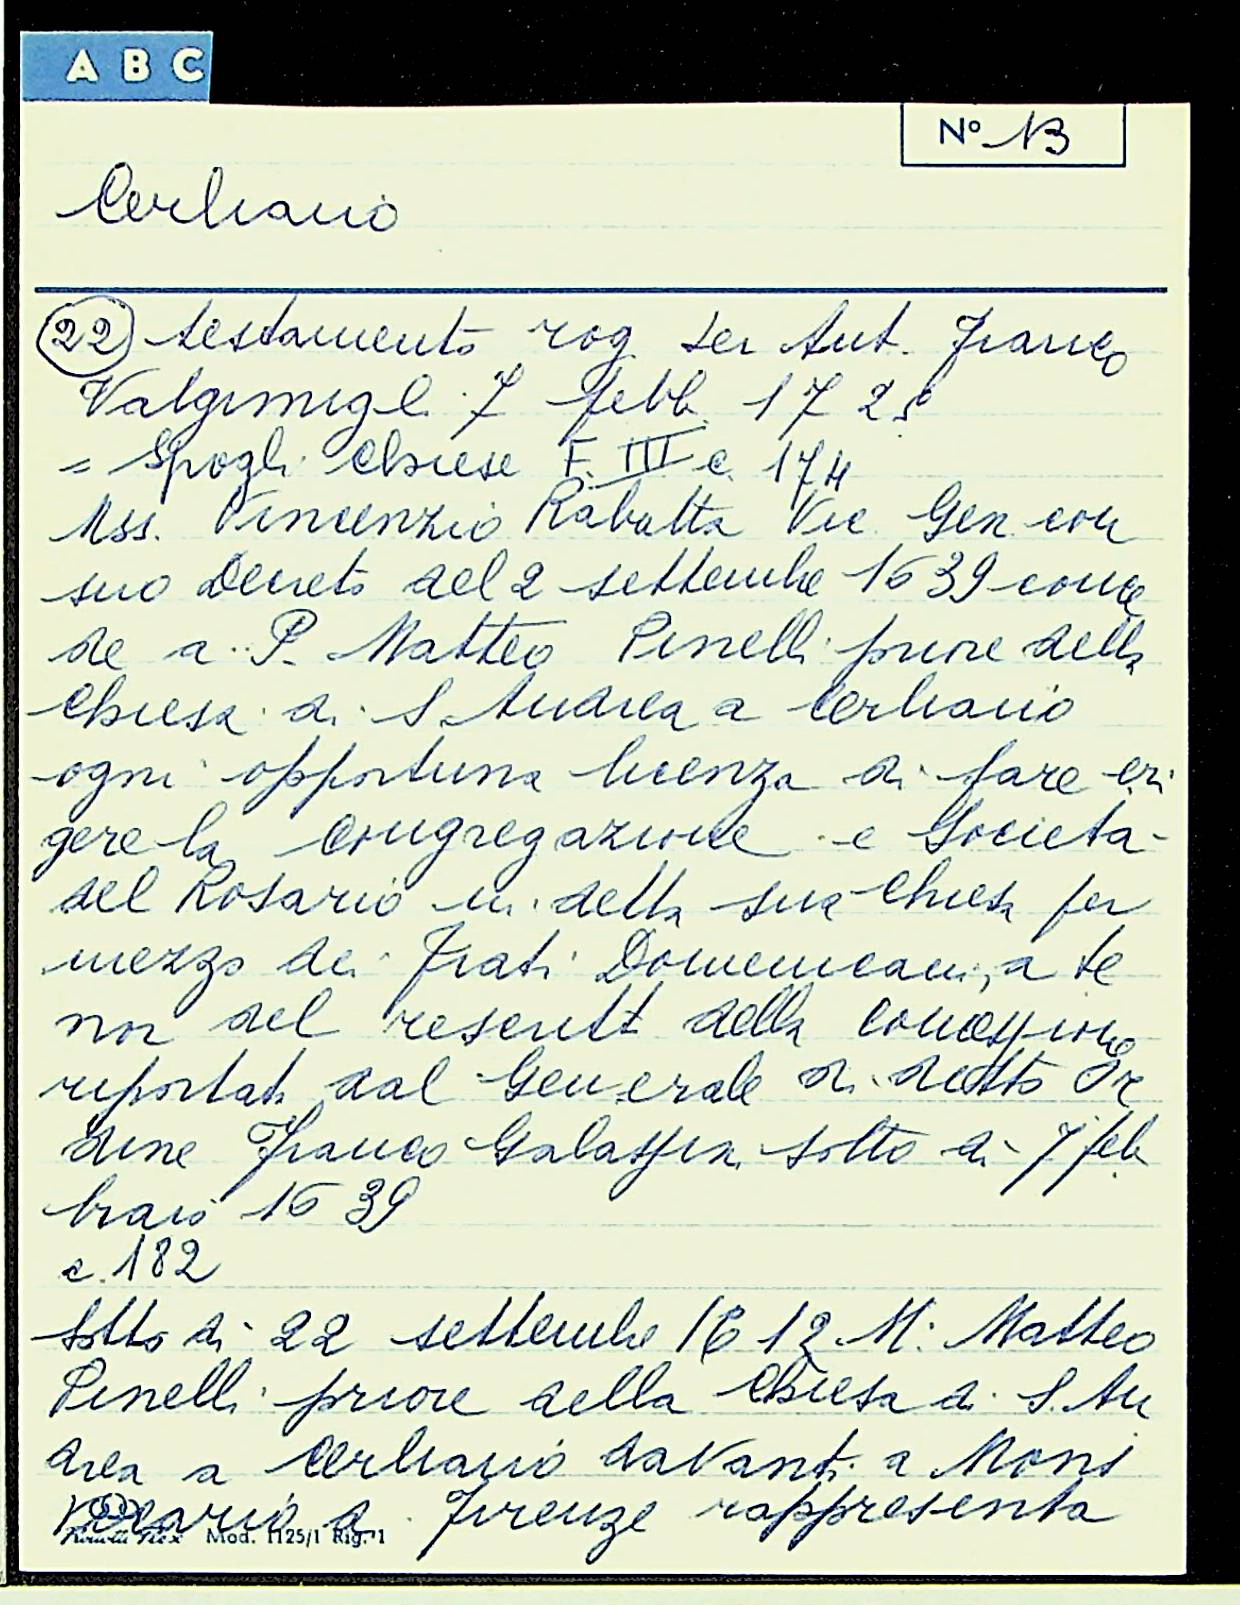 A B C
Nº 13
Cerliano
(22) testamento rog ser Ant. Franco
Valgimigli 7 febb. 172
= Spogli Chiese F. III c. 174
Mss. Vincenzio Rabatta Vic Gen con
suo Decreto del 2 settembre 1639 conce
de a P. Matteo Pinelli priore della
Chiesa di S. Andrea a Cerliano
ogni opportuna licenza di fare eri
gere la Congregazione e Società
del Rosario in detta sua Chiesa per
mezzo dei Frati Domenicani, a te
nor del rescritt della concessione
riportat dal Generale di detto Or
dine Franco Galassin sotto di 7 feb
braio 1639
c. 182
Sotto di 22 settembre 1612 M. Matteo
Pinelli priore della Chiesa di S. An
drea a Cerliano davanti a Mons
Vicario di Firenze rappresenta
Mod. 1125/1 Rig. 1